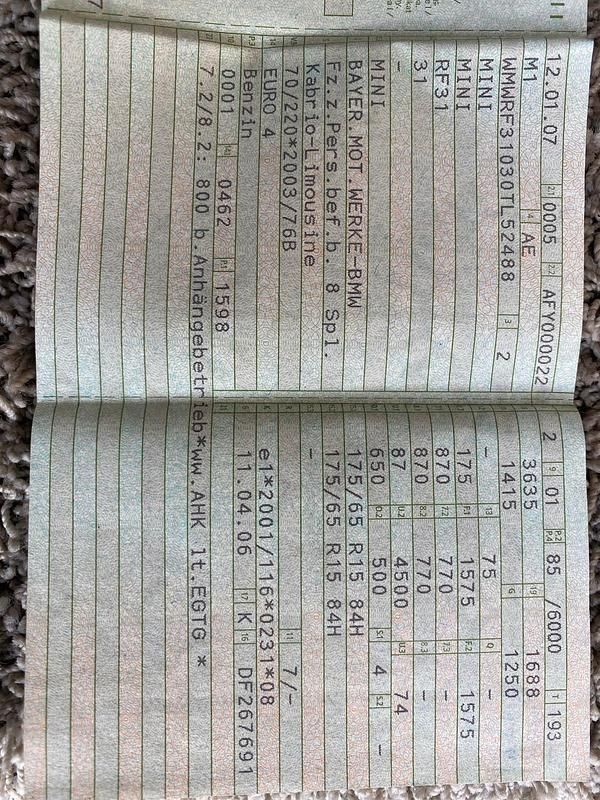 12.01.07 2.1 0005 2.2 AFY000022
M1 4 AE
WMWRF31030TL52488 3 2
MINI
MINI
RF31
31
-
MINI
BAYER.MOT.WERKE-BMW
Fz.z.Pers.bef.b. 8 Spl.
Kabrio-Limousine
70/220*2003/76B
EURO 4
Benzin
0001 14 0462 P.1 1598
7.2/8.2: 800 b.Anhängebetrieb*ww.AHK lt.EGTG *
2 9 01 P.2 P.4 85 /6000 T 193
3635 19 1688
1415 G 1250
- 13 75 Q -
175 F.1 1575 F.2 1575
870 7.2 770 7.3 -
870 8.2 770 8.3 -
87 U.2 4500 U.3 74
650 O.2 500 S.1 4 S.2 -
175/65 R15 84H
175/65 R15 84H
-
R 11 7/-
K e1*2001/116*0231*08
6 11.04.06 17 K 16 DF267691